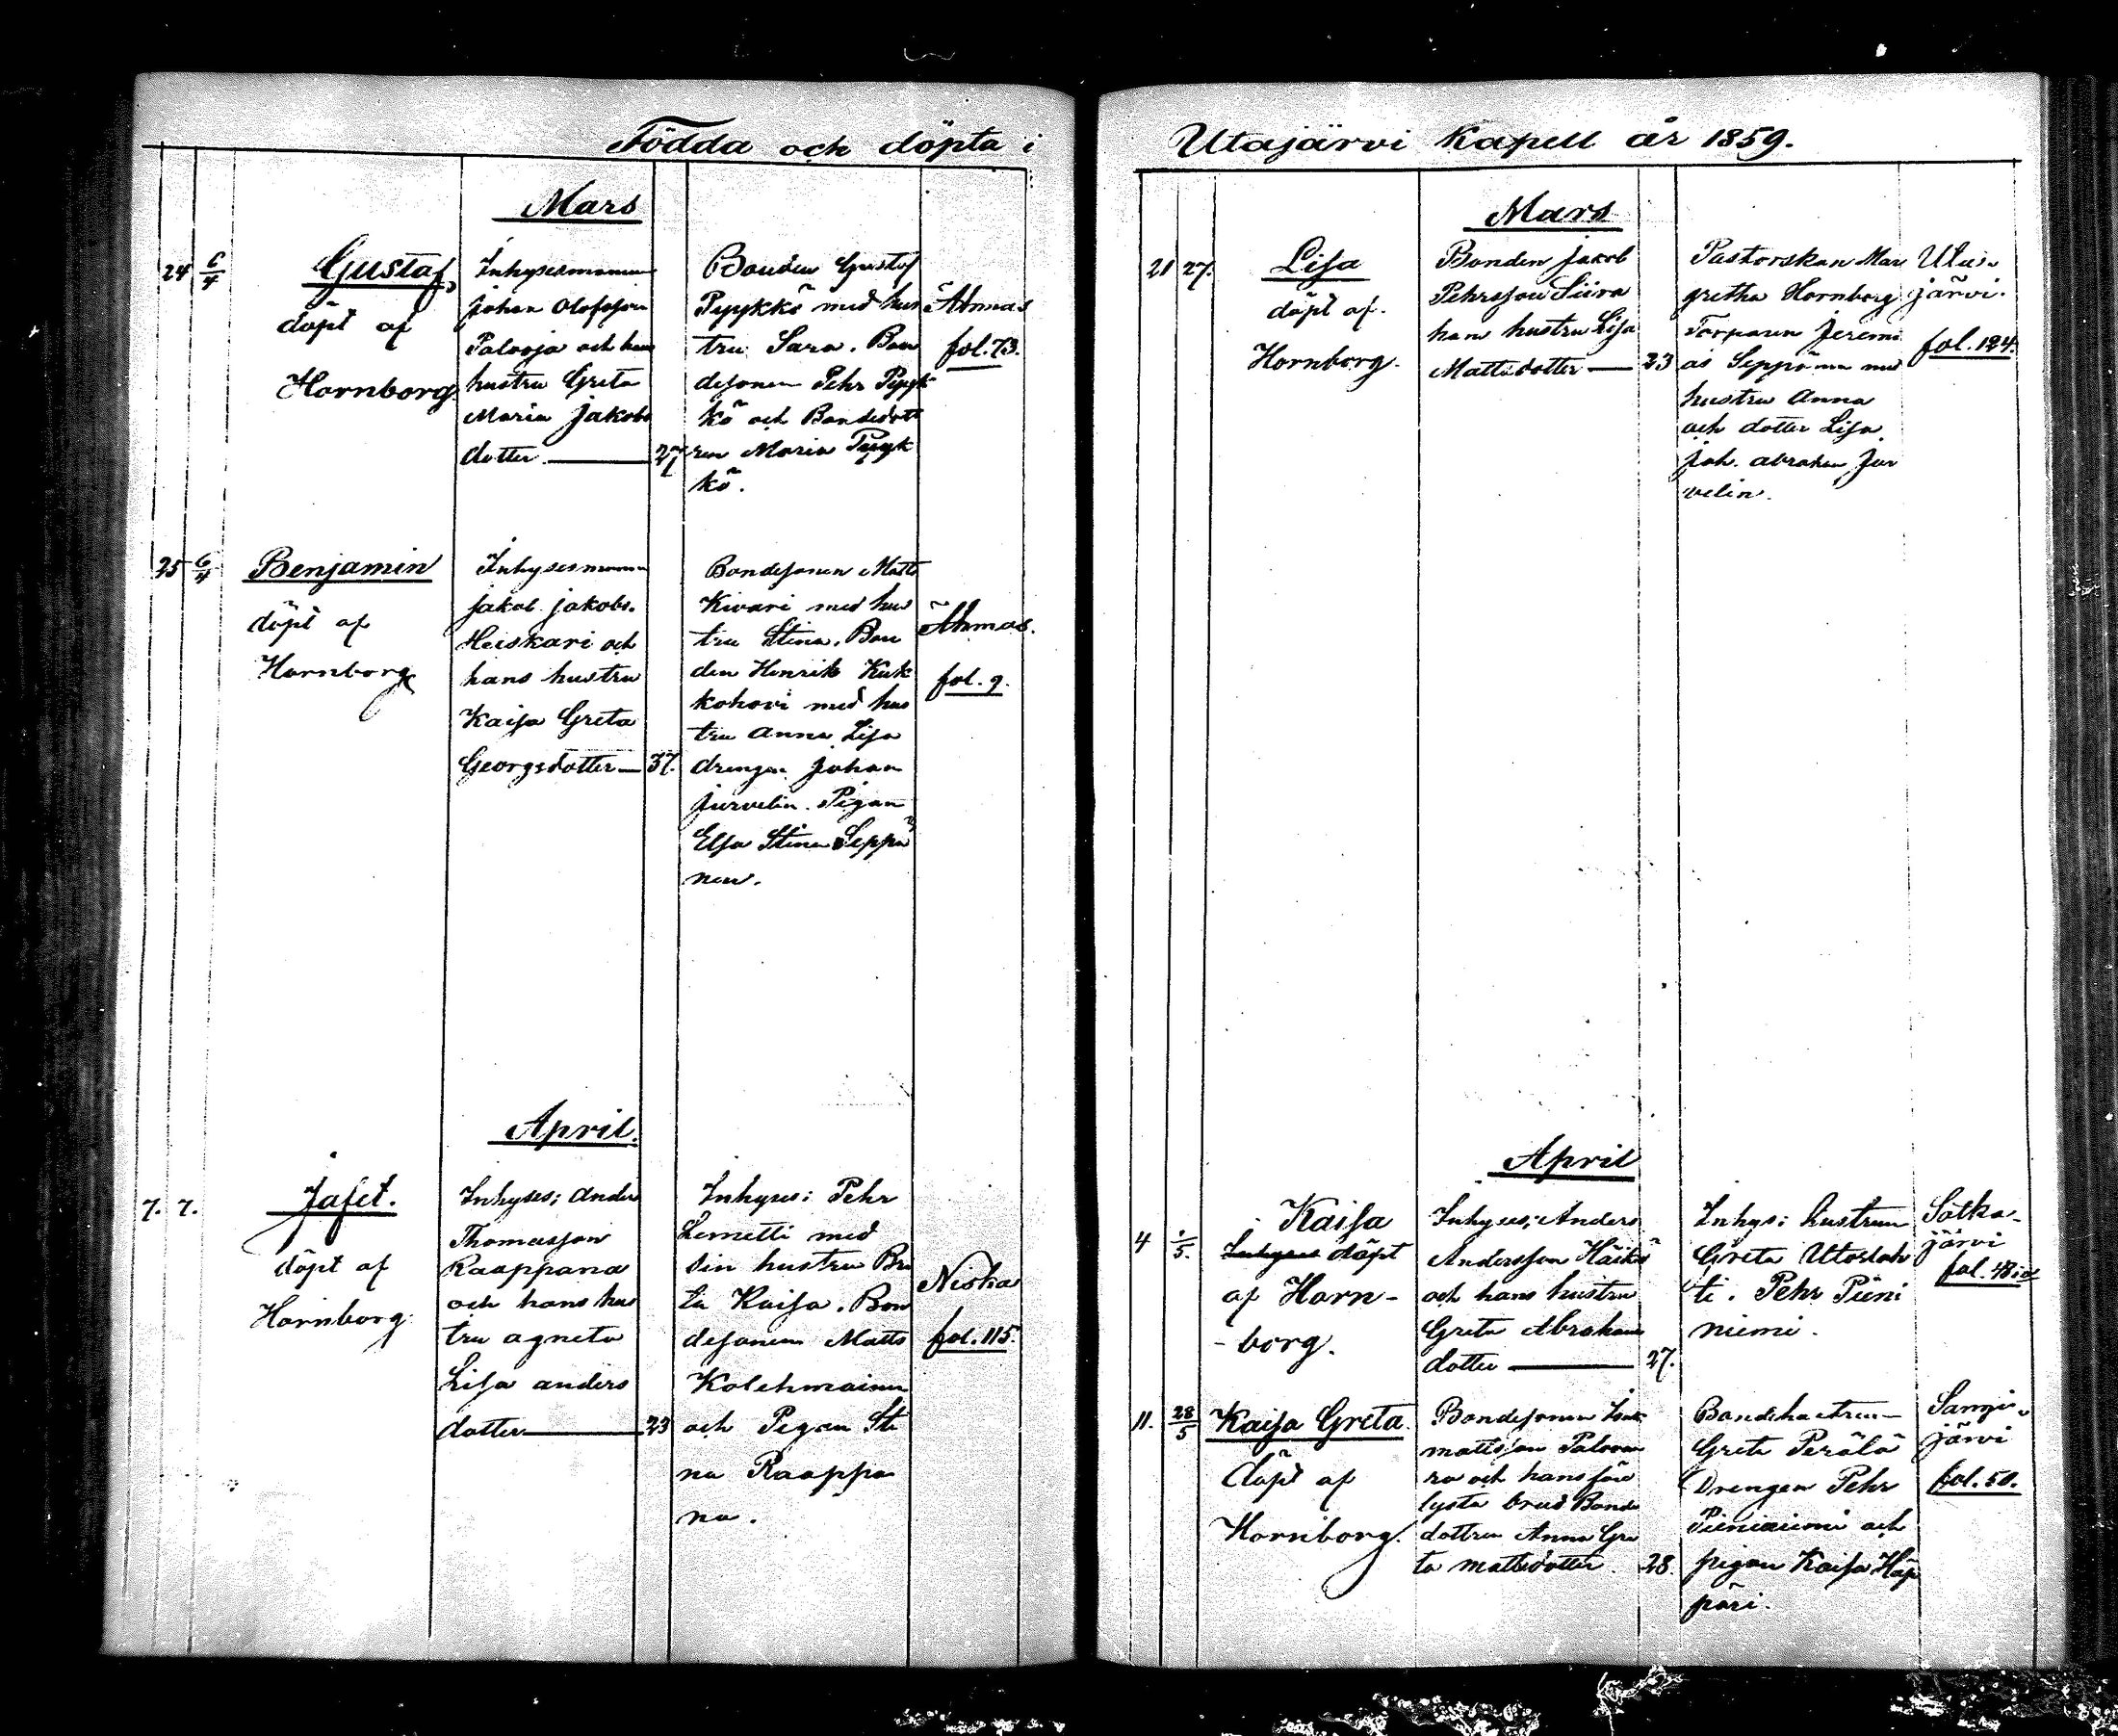 Födda och döpta i
Mars
24 6/4 Gustaf,
döpt af
Hornborg
Inhysesmannen
Johan Olofsson
Palooja och hans
hustru Greta
Maria Jakobs
dotter 27
Bonden Gustaf
Pyykkö med hus
tru Sara. Bon
desonen Pehr Pyyk
kö och Bondedott
ren Maria Pyyk
kö.
Ahmas
fol. 73.
25 6/4 Benjamin
döpt af
Hornborg
Inhysesmannen
Jakob Jakobs.
Heiskari och
hans hustru
Kaisa Greta
Georgsdotter 37.
Bondesonen Matts
Kivari med hus
tru Stina. Bon
den Henrik Kuk
kohovi med hus
tru Anna Lisa
drengen Johan
Jurvelin. Pigan
Elsa Stina Seppä
nen.
Ahmas.
fol. 9.
April.
7. 7. Jafet.
döpt af
Hornborg
Inhyses: Anders
Thomasson
Raappana
och hans hus
tru Agneta
Lisa Anders
dotter 23
Inhyses: Pehr
Lemetti med
sin hustru Bri
ta Kaisa. Bon
desonen Matts
Kolehmainen
och Pigan Sti
na Raappa
na.
Niska
fol. 115.
Utajärvi Kapell år 1859.
Mars
21 27. Lisa
döpt af.
Hornborg.
Bonden Jakob
Pehrsson Siira
hans hustru Lisa
Mattsdotter 23
Pastorskan Mar
gretha Hornborg
Torparen Jeremi
as Seppänen med
hustru Anna
och dotter Lisa
Joh. Abraham Jur
velin.
Uta-
järvi.
fol. 124.
April
4 1/5. Kaisa
Inhyses döpt
af Horn-
-borg.
Inhyses: Anders
Andersson Häikiö
och hans hustru
Greta Abrahams
dotter 27.
Inhys: hustrun
Greta Utoslah
ti. Pehr Pieni
niemi.
Sotka-
järvi
fol. 48
11. 28/5 Kaisa Greta.
döpt af
Hornborg.
Bondesonen Isak
Mattsson Palovaa
ra och hans för
lysta brud Bonde
dottren Anna Gre
ta Mattsdotter. 28.
Bondehustrun
Greta Perälä
Drengen Pehr
Pieniniemi och
pigan Kaisa Häp
päri.
Sangi-
järvi
fol. 50.